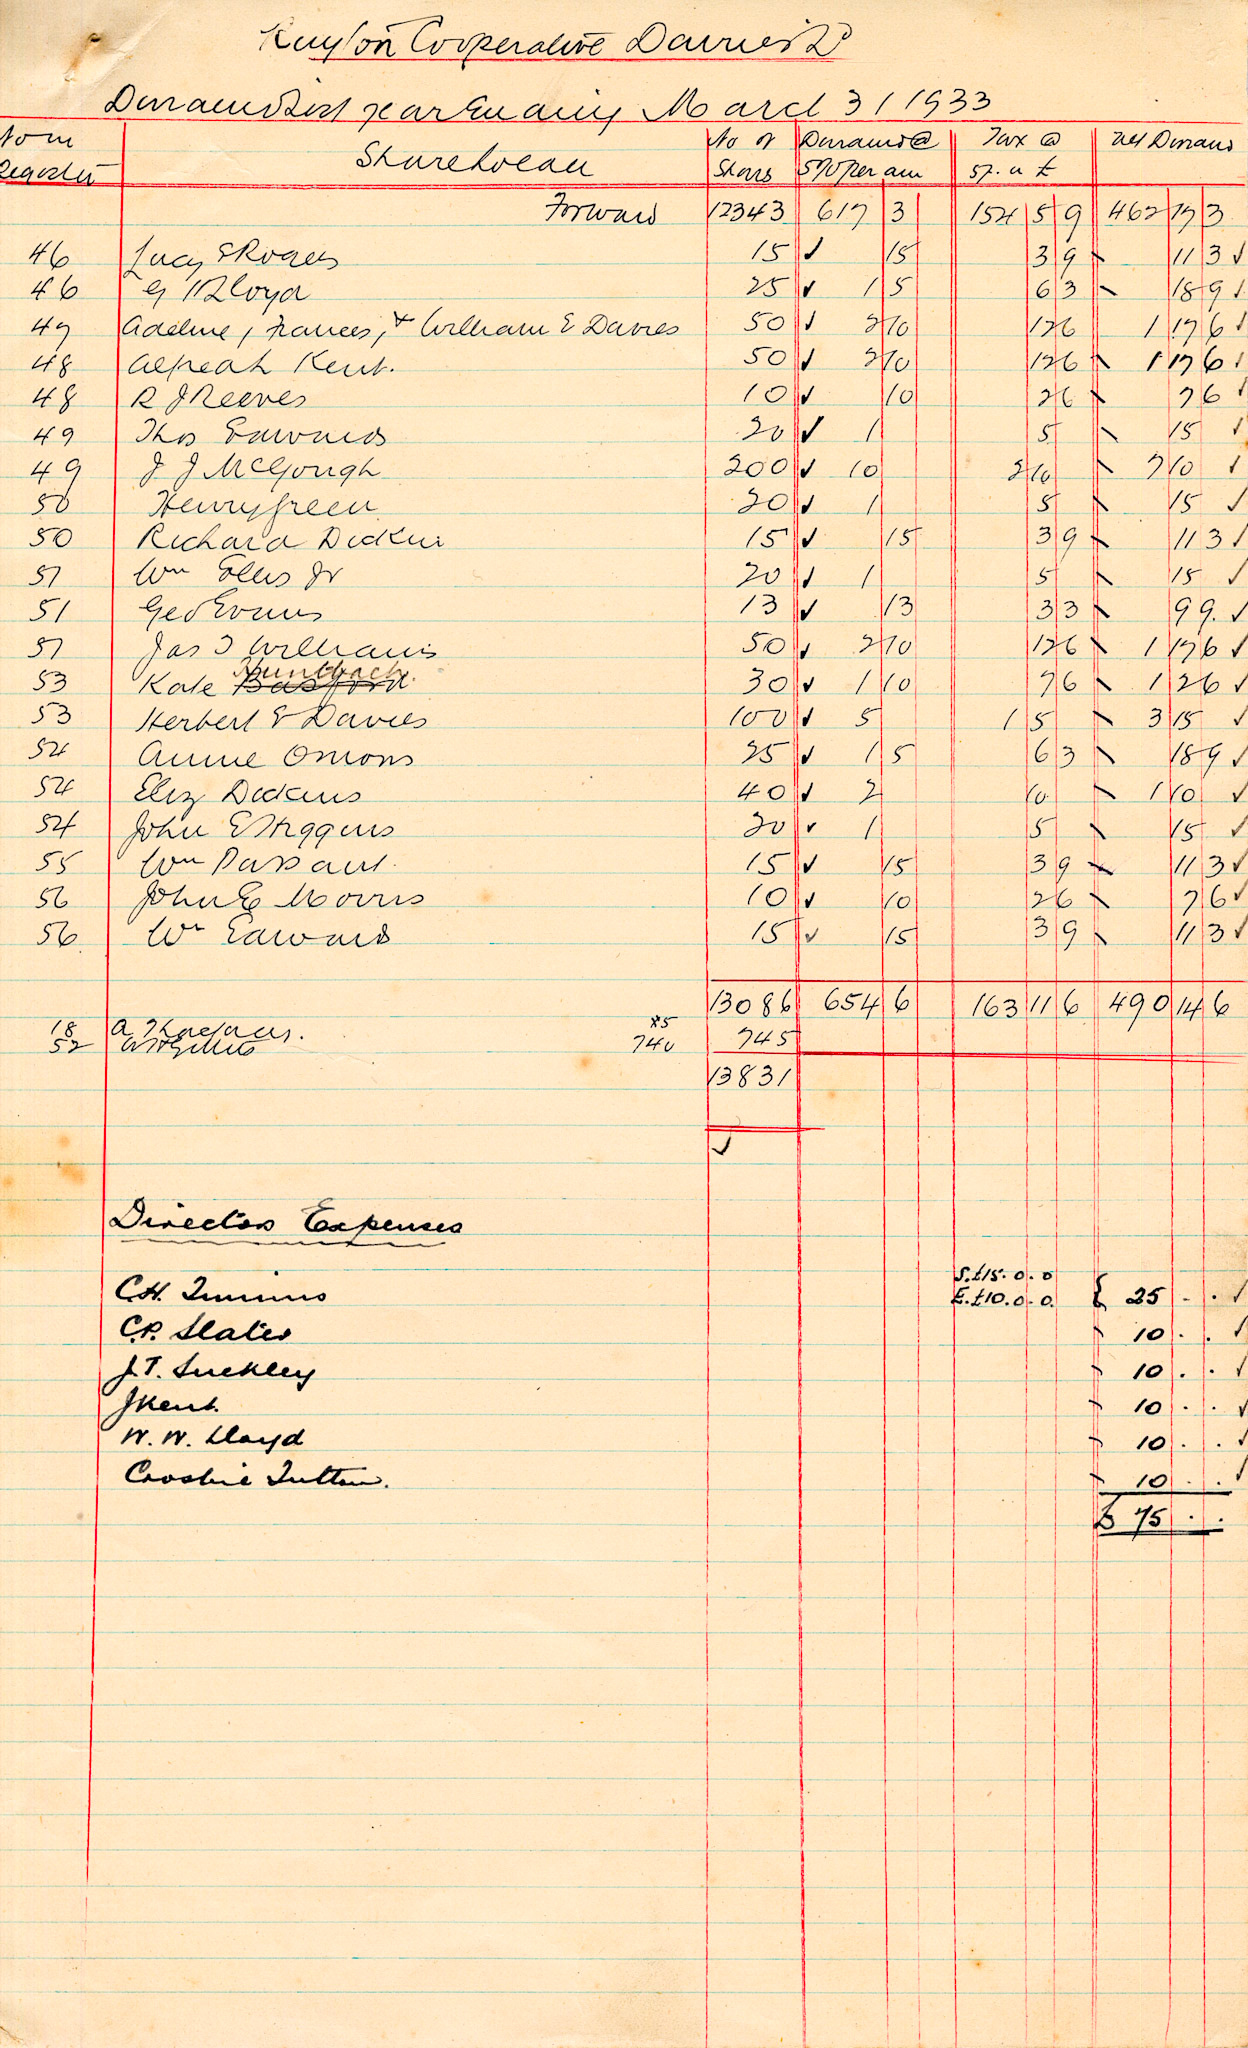 Ruyton Cooperative Dairies Ld
Dividend List year Ending March 31 1933
No in Register Shareholder No of Shares Dividend @ 5% per ann Tax @ 5/- in £ Nett Dividend
Forward 12343 617 3 154 5 9 462 17 3
46 Lucy E Rogers 15 ✓ 15 3 9 11 3 ✓
46 G Lloyd 25 ✓ 1 5 6 3 18 9 ✓
47 Adeline, Frances, & William E Davies 50 ✓ 2 10 12 6 1 17 6 ✓
48 Alfreah Kent. 50 ✓ 2 10 12 6 1 17 6 ✓
48 R J Reeves 10 ✓ 10 2 6 7 6 ✓
49 Thos Edwards 20 ✓ 1 5 15 ✓
49 J J McGough 200 ✓ 10 2 10 7 10 ✓
50 Henry Green 20 ✓ 1 5 15 ✓
50 Richard Dickin 15 ✓ 15 3 9 11 3 ✓
51 Wm Ellis Jr 20 ✓ 1 5 15 ✓
51 Geo Evans 13 ✓ 13 3 3 9 9 ✓
51 Jas T Williams 50 ✓ 2 10 12 6 1 17 6 ✓
Huntbach
53 Kate Basford 30 ✓ 1 10 7 6 1 2 6 ✓
53 Herbert E Davies 100 ✓ 5 1 5 3 15 ✓
54 Annie Onions 25 ✓ 1 5 6 3 18 9 ✓
54 Eliz Dickins 40 ✓ 2 10 1 10 ✓
54 John E Higgins 20 ✓ 1 5 15 ✓
55 Wm Passant 15 ✓ 15 3 9 11 3 ✓
56 John E Morris 10 ✓ 10 2 6 7 6 ✓
56 Wm Edwards 15 ✓ 15 3 9 11 3 ✓
13086 654 6 163 11 6 490 14 6
18 A 5
52 740 745
13831
✓
Directors Expenses
S. £15. 0. 0
C.H. Timmis E. £10. 0. 0. £ 25 . . ✓
C.P. Slater 10 . . ✓
J.T. Suckley 10 . . ✓
J Kent. 10 . . ✓
W. W. Lloyd 10 . . ✓
Crosbie Tutton. 10 . . ✓
£ 75 . .